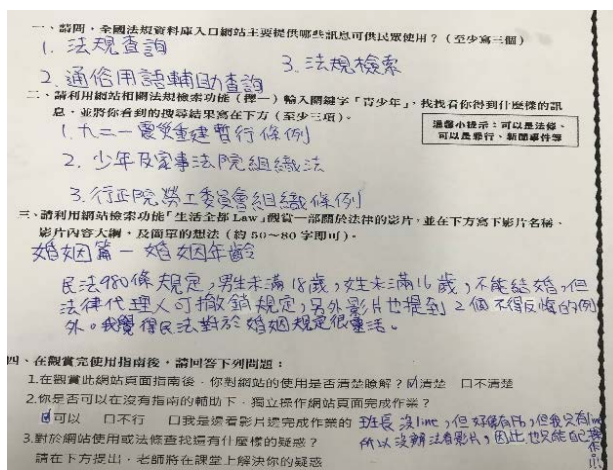 一、請問，全國法規資料庫入口網站主要提供哪些訊息可供民眾使用？（至少寫三個）
1. 法規查詢
3. 法規檢索
2. 通俗用語輔助查詢
二、請利用網站相關法規檢索功能（擇一）輸入關鍵字「青少年」，找找看你得到什麼樣的訊
息，並將你看到的搜尋結果寫在下方（至少三項）。
溫馨小提示：可以是法條、
可以是罪行、新聞事件等
1. 九二一震災重建暫行條例
2. 少年及家事法院組織法
3. 行政院勞工委員會組織條例
三、請利用網站檢索功能「生活全都Law」觀賞一部關於法律的影片，並在下方寫下影片名稱、
影片內容大綱，及簡單的想法（約 50～80 字即可）。
婚姻篇－婚姻年齡
民法980條規定，男生未滿18歲，女生未滿16歲，不能結婚，但
法律代理人可撤銷規定，另外影片也提到2個不得反悔的例
外。我覺得民法對於婚姻規定很靈活。
四、在觀賞完使用指南後，請回答下列問題：
1.在觀賞此網站頁面指南後，你對網站的使用是否清楚瞭解？☑清楚 □不清楚
2.你是否可以在沒有指南的輔助下，獨立操作網站頁面完成作業？
☑可以 □不行 □我是邊看影片邊完成作業的
班長沒line，但好像有FB，但我只有line
所以沒辦法看影片，因此也只能自己操作
3.對於網站使用或法條查找還有什麼樣的疑惑？
請在下方提出，老師將在課堂上解決你的疑惑